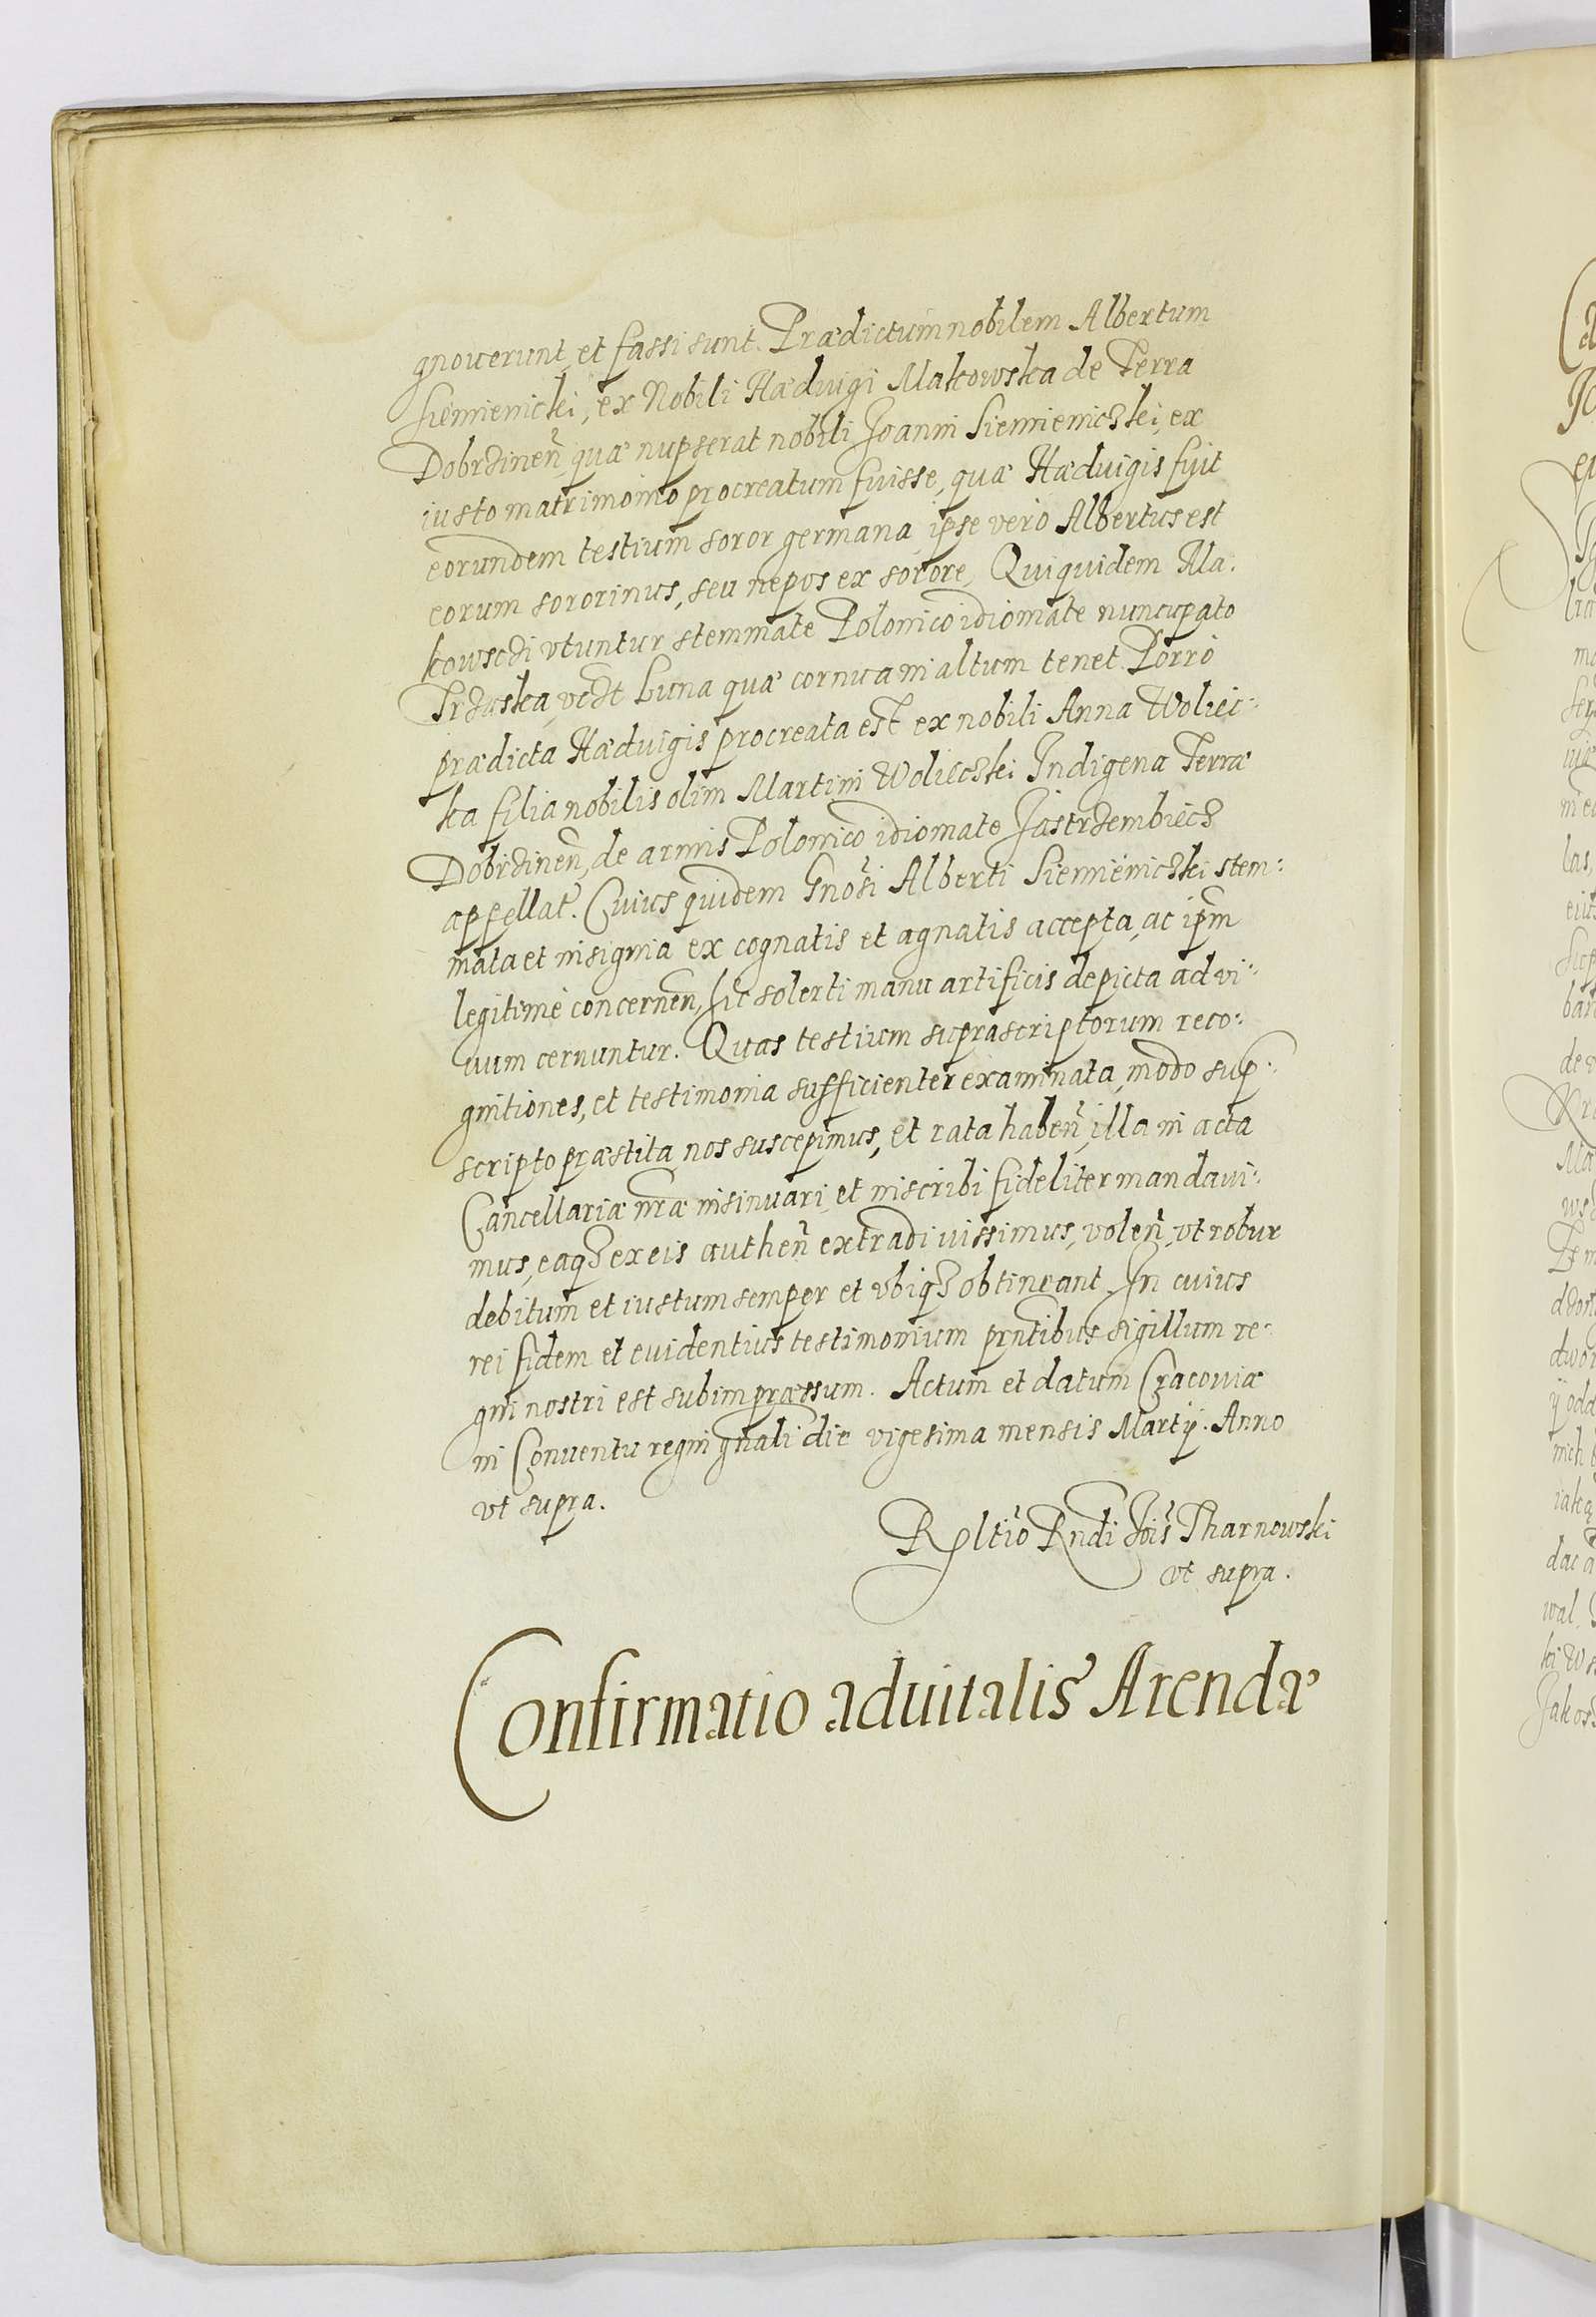 gnouerunt, et fassi sunt. Prædictum nobilem Albertum
Siemienicki, ex Nobili Hædvigi Makowska de Terra
Dobrzinen̄ quæ nupserat nobili Joanni Siemieniczki, ex
iusto matrimonio procreatum fuisse, quæ Hædvigis fuit
eorundem testium soror germana, ipse verò Albertus est
eorum sororinus, seu nepos ex sorore, Quiquidem Ma:
kowsczi vtuntur stemmate Polonico idiomate nuncupato
Trzaska, vczt Luna quæ cornua in altum tenet. Porrò
prædicta Hædvigis procreata est ex nobili Anna Woliec:
ka filia nobilis olim Martini Wolieczki Indigena Terræ
Dobrzinen̄, de armis Polonico idiomate Jastrzembiecz
appellat̄. Cuius quidem Gnosi Alberti Siemieniczki stem:
mata et insignia ex cognatis et agnatis accepta, ac ipm̄
legitimè concernen̄, hic solerti manu artificis depicta ad vi:
uum cernuntur. Quas testium suprascriptorum reco:
gnitiones, et testimonia sufficienter examinata, modo sup:
scripto præstita, nos suscepimus, et rata haben̄, illa in acta
Cancellariæ nr̄æ insinuari, et inscribi fideliter mandaui:
mus, eaqꝫ ex eis authen̄ extradi iussimus, volen̄, vt robur
debitum et iustum semper et vbiqꝫ obtineant. In cuius
rei fidem et euidentius testimonium prn̄tibus sigillum re:
gni nostri est subimpræssum. Actum et datum Cracouiæ
in Conuentu regni gn̄ali die vigesima mensis Martij. Anno
vt supra.
Rltio Rndi Jois Tharnowski
vt supra.
Confirmatio aduitalis Arendæ